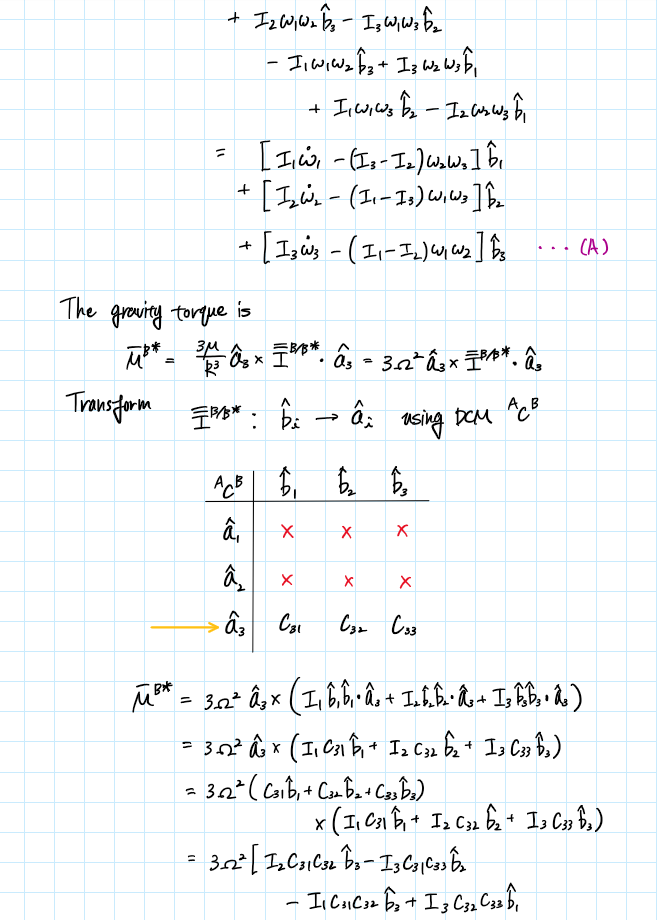 + I₂ω₁ω₂ b̂₃ − I₃ω₁ω₃ b̂₂
− I₁ω₁ω₂ b̂₃ + I₃ω₂ω₃ b̂₁
+ I₁ω₁ω₃ b̂₂ − I₂ω₂ω₃ b̂₁
= [I₁ω̇₁ − (I₃−I₂)ω₂ω₃] b̂₁
+ [I₂ω̇₂ − (I₁−I₃)ω₁ω₃] b̂₂
+ [I₃ω̇₃ − (I₁−I₂)ω₁ω₂] b̂₃ ··· (A)
The gravity torque is
M̄ᴮ* = 3μ/R³ â₃ × I̿ᴮ/ᴮ* · â₃ = 3Ω² â₃ × I̿ᴮ/ᴮ* · â₃
Transform I̿ᴮ/ᴮ* : b̂ᵢ → âᵢ using DCM ᴬCᴮ
ᴬCᴮ b̂₁ b̂₂ b̂₃
â₁ × × ×
â₂ × × ×
→ â₃ C₃₁ C₃₂ C₃₃
M̄ᴮ* = 3Ω² â₃ × (I₁ b̂₁b̂₁·â₃ + I₂b̂₂b̂₂·â₃ + I₃ b̂₃b̂₃·â₃)
= 3Ω² â₃ × (I₁ C₃₁ b̂₁ + I₂ C₃₂ b̂₂ + I₃ C₃₃ b̂₃)
= 3Ω² (C₃₁b̂₁ + C₃₂b̂₂ + C₃₃b̂₃)
× (I₁ C₃₁ b̂₁ + I₂ C₃₂ b̂₂ + I₃ C₃₃ b̂₃)
= 3Ω² [I₂C₃₁C₃₂ b̂₃ − I₃C₃₁C₃₃ b̂₂
− I₁C₃₁C₃₂ b̂₃ + I₃ C₃₂ C₃₃ b̂₁